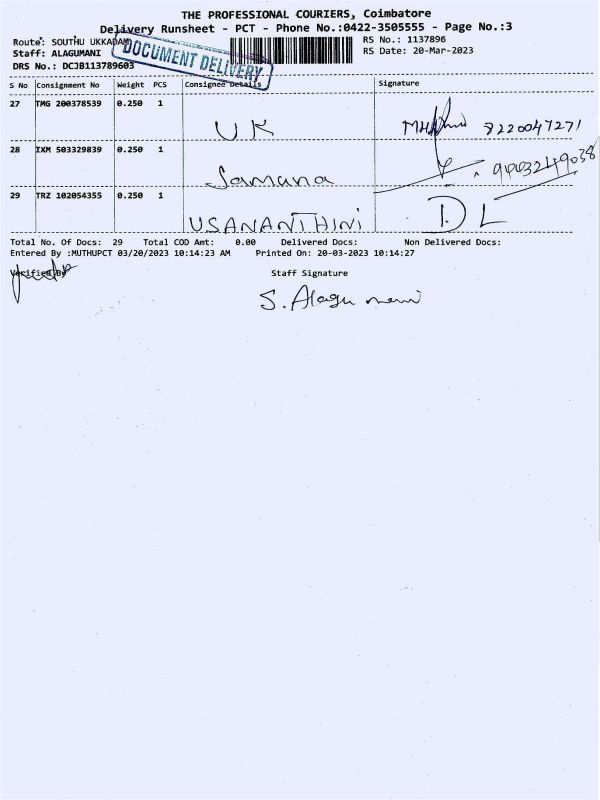 THE PROFESSIONAL COURIERS, Coimbatore
Delivery Runsheet - PCT - Phone No.:0422-3505555 - Page No.:3
Route: SOUTHU UKKADAM
RS No.: 1137896
Staff: ALAGUMANI
RS Date: 20-Mar-2023
DRS No.: DCJB113789603
DOCUMENT DELIVERY
S No Consignment No Weight PCS Consignee Details Signature
27 TMG 200378539 0.250 1
UK 8220047271
28 IXM 503329839 0.250 1
Samana
29 TRZ 102054355 0.250 1
USANANTHINI D L
Total No. Of Docs: 29 Total COD Amt: 0.00 Delivered Docs: Non Delivered Docs:
Entered By :MUTHUPCT 03/20/2023 10:14:23 AM Printed On: 20-03-2023 10:14:27
Verified By Staff Signature
S. Alagu mani